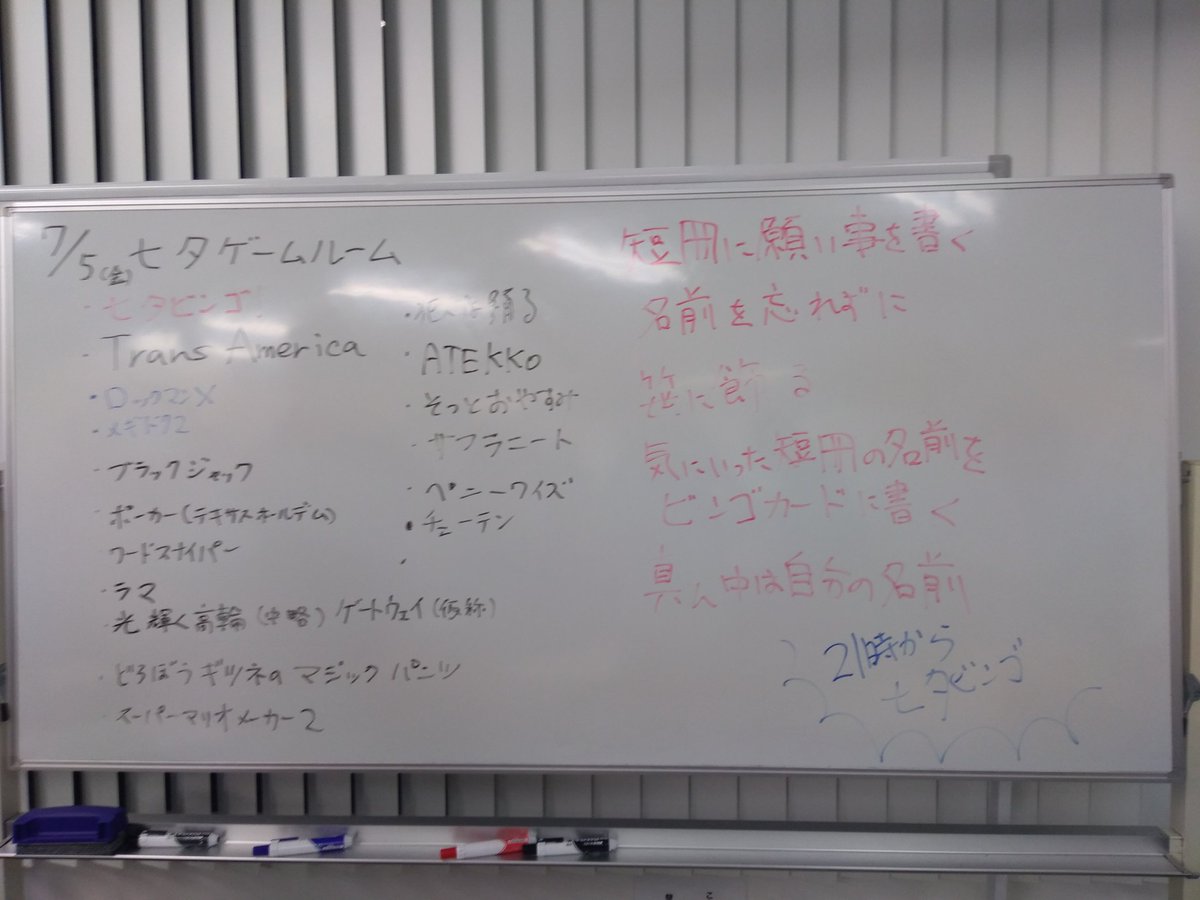 7/5(金)七夕ゲームルーム
・七夕ビンゴ!
・Trans America
・ロックマンX
・メギド72
・ブラックジャック
・ポーカー(テキサスホールデム)
・フードスナイパー
・ラマ
・光輝く高輪(中略)ゲートウェイ(仮称)
・どろぼうギツネのマジックパンツ
・スーパーマリオメーカー2
踊る
・ATEKKO
・そっとおやすみ
・サフラニート
・ペニーワイズ
・チューテン
・
短冊に願い事を書く
名前を忘れずに
笹に飾る
気にいった短冊の名前を
ビンゴカードに書く
真ん中は自分の名前
21時から
七夕ビンゴ